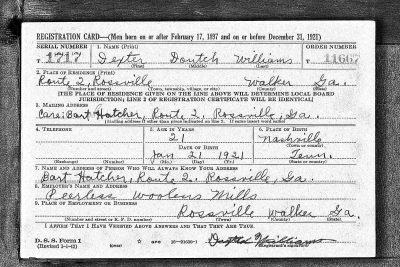 REGISTRATION CARD—(Men born on or after February 17, 1897 and on or before December 31, 1921)
SERIAL NUMBER 1. NAME (Print) ORDER NUMBER
T 1717 Dexter Doutch Williams T 11667
(First) (Middle) (Last)
2. PLACE OF RESIDENCE (Print)
Route 2, Rossville Walker Ga.
(Number and street) (Town, township, village, or city) (County) (State)
[THE PLACE OF RESIDENCE GIVEN ON THE LINE ABOVE WILL DETERMINE LOCAL BOARD
JURISDICTION; LINE 2 OF REGISTRATION CERTIFICATE WILL BE IDENTICAL]
3. MAILING ADDRESS
Care: Bart Hatcher, Route 2. Rossville, Ga.
[Mailing address if other than place indicated on line 2. If same insert word same]
4. TELEPHONE 5. AGE IN YEARS 6. PLACE OF BIRTH
21 Nashville
DATE OF BIRTH (Town or county)
Jan 21 1921 Tenn.
(Exchange) (Number) (Mo.) (Day) (Yr.) (State or country)
7. NAME AND ADDRESS OF PERSON WHO WILL ALWAYS KNOW YOUR ADDRESS
Bart Hatcher, Route 2. Rossville, Ga.
8. EMPLOYER'S NAME AND ADDRESS
Peerless Woolens Mills
9. PLACE OF EMPLOYMENT OR BUSINESS
Rossville Walker Ga.
(Number and street or R. F. D. number) (Town) (County) (State)
I AFFIRM THAT I HAVE VERIFIED ABOVE ANSWERS AND THAT THEY ARE TRUE.
D. S. S. Form 1
(Revised 1-1-42) (over) Williams
(Registrant's signature)